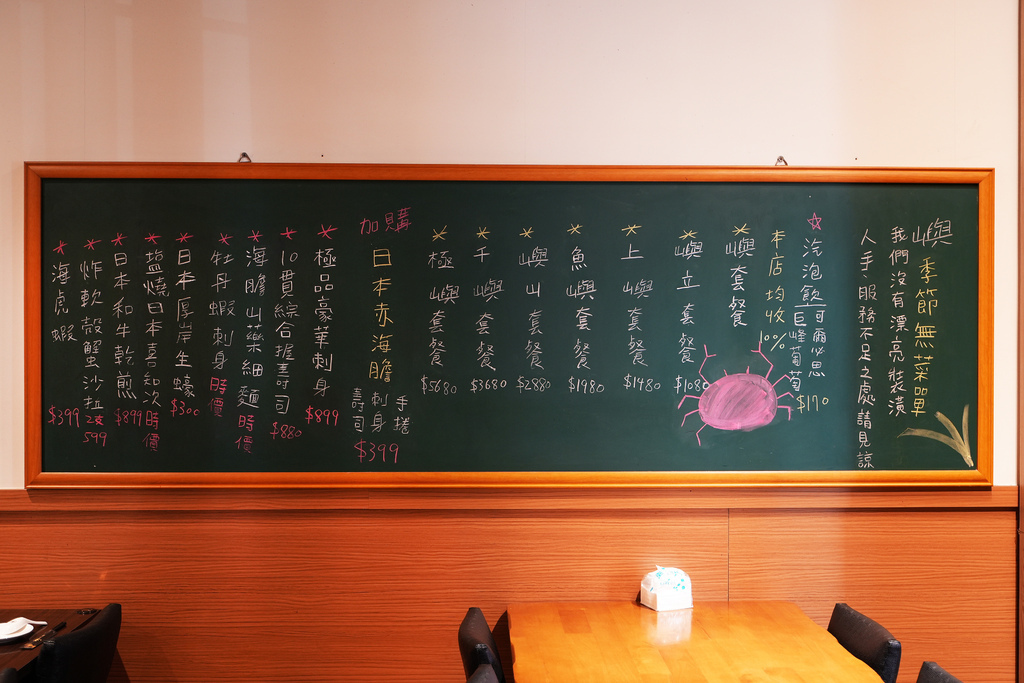 嶼 季節無菜品單
我們沒有漂亮裝潢
人手、服務不足之處請見諒
☆汽泡飲 可爾必思
巨峰葡萄 $170
本店均收10%
*嶼套餐
*嶼立套餐 $1080
*上嶼套餐 $1480
*魚嶼套餐 $1980
*嶼山套餐 $2880
*千嶼套餐 $3680
*極嶼套餐 $5680
加購
日本赤海膽 手捲
刺身
壽司
$399
*極品豪華刺身 $899
*10貫綜合握壽司 $880
*海膽山藥細麵 時價
*牡丹蝦刺身 時價
*日本厚岸生蠔 $300
*塩燒日本喜知次 時價
*日本和牛乾煎 $899
*炸軟殼蟹沙拉 2支 599
*海虎蝦 $399